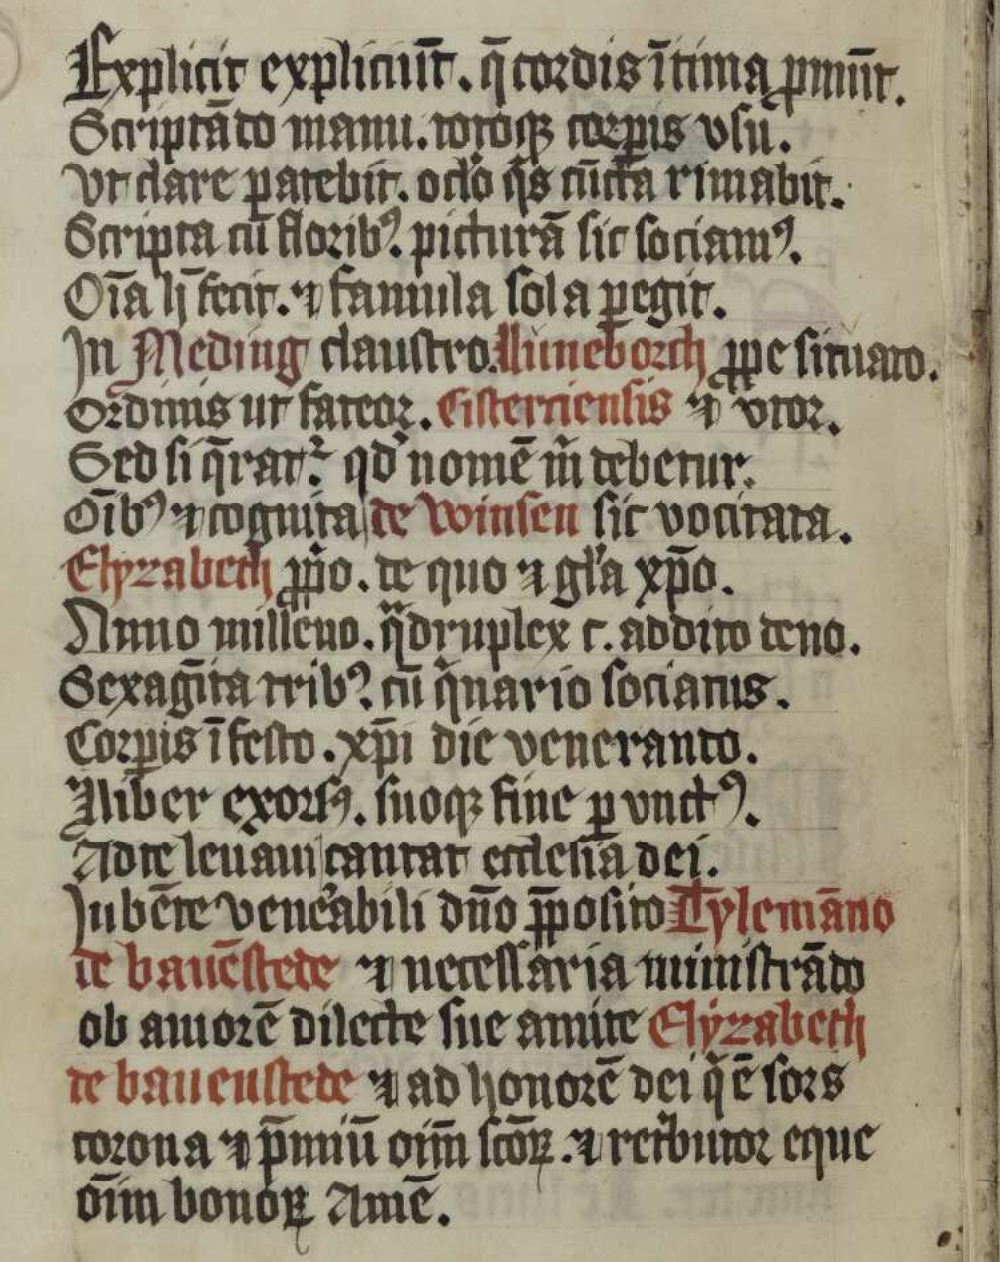 Explicit expliciūt. q̄ cordis ītima p̲mūt.
Scriptādo manu. totoqꝫ corꝑis vsu.
Vt clare patebit. oc̄lo q̄s cūcta rimabit.
Scripta cū floribꝰ. picturā sic sociamꝰ.
Oīa h̄ fecit. ⁊ famula sola ꝑegit.
In Meding claustro. Luneborch ꝓpe situato.
Ordinis ut fateor. Cisterciensis ⁊ vtor.
Sed si q̄ratᷣ. qd̓ nomē m̄ debetur.
Oībꝰ ⁊ cognita de Winsen sic vocitata.
Elyzabeth ꝓp̄o. de quo ⁊ gl̓a xp̄o.
Anno milleno. qͣdruplex c. addito deno.
Sexaḡita tribꝰ. cū q̄nario sociatus.
Corꝑis ī festo. xp̄i die veneranto.
Aliber exorsꝰ. suoqꝫ fine ꝑunctꝰ.
Ad te leuaui cantat ecclesia dei.
Jubēte venerabili dn̄o p̄posito Tylemāno
de bauēstede ⁊ necessaria ministrādo
ob amorē dilecte sue amite Elyzabeth
de bauenstede ⁊ ad honorē dei q̄ ē sors
corona ⁊ p̄miū oīm sc̄oꝝ. ⁊ retͥbutor eque
oīm bonoꝝ Amē.